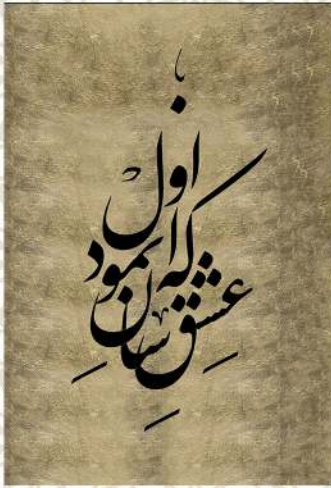 که عشق آسان نمود اول